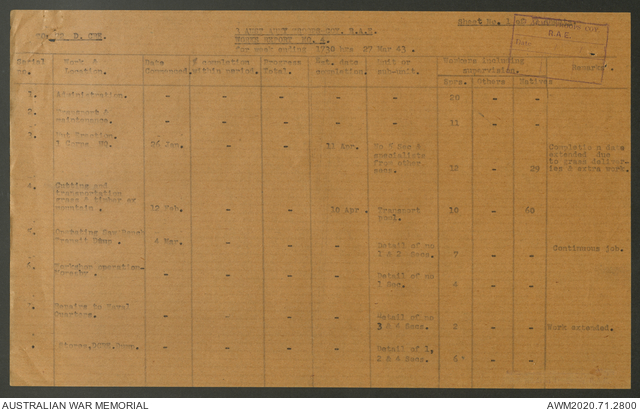 Sheet No. 1
R.A.E.
WORKS REPORT NO. 4.
for week ending 1730 hrs 27 Mar 43.
Serial no. Work & Location. Date Commenced % completion within period. Progress Total. Est. date completion Unit or sub-unit. Workers including supervision. Remarks
Sprs. Others Natives
1. Administration. - - - - - 20 - -
2. Transport & maintenance. - - - - - 11 - -
3. Hut Erection
1 Corps HQ. 26 Jan. - - 11 Apr. No Sec & specialists from other secs. 12 - 29 Completion date extended due to grass deliveries & extra work.
4. Cutting and transportation grass & timber 19 Feb. - - 10 Apr. Transport pool. 10 - 60
5. Operating
Transit 4 Mar. - - - Detail of no 1 & 2 Secs. 7 - - Continuous job.
6. Workshop operation- - - - - Detail of no 1 Sec. 4 - -
Repairs to Naval Quarters. - - - - Detail of no 3 & 4 Secs. 2 - - Work extended.
Stores, Dump. - - - - Detail of 1, 2 & 4 Secs. 6 - -
AUSTRALIAN WAR MEMORIAL
AWM2020.71.2800